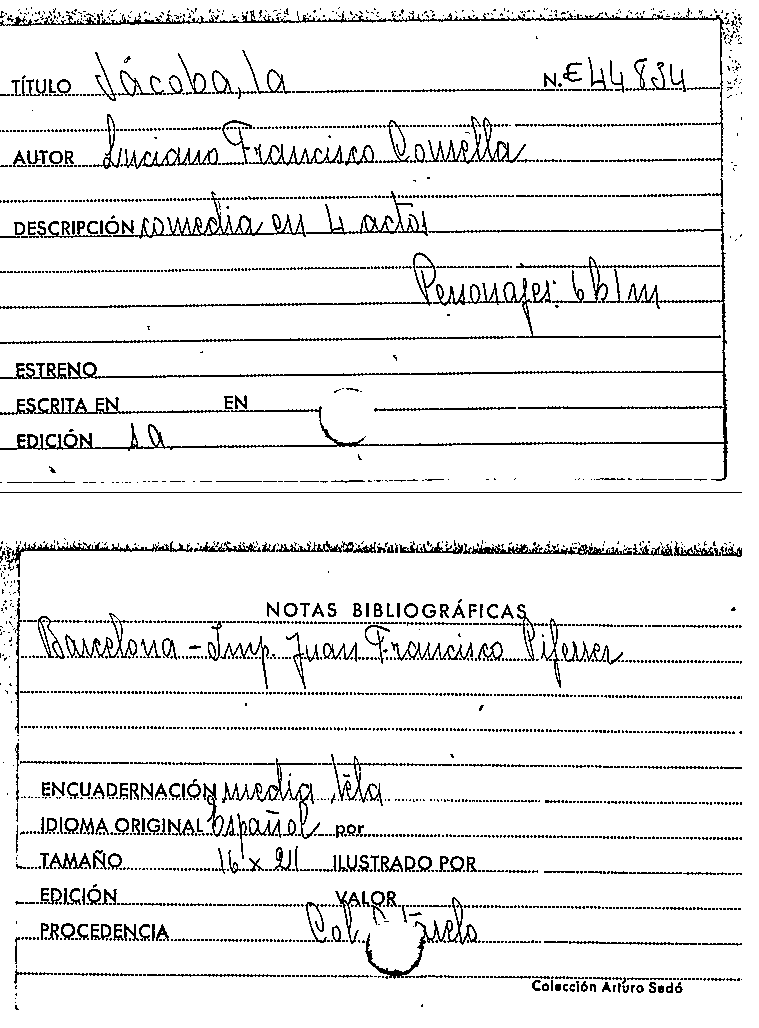 TÍTULO Jácoba, la N. E 44 834
AUTOR Luciano Francisco Comella
DESCRIPCIÓN comedia en 4 actos
Personajes: 6 h 1 m
ESTRENO
ESCRITA EN EN
EDICIÓN s a
NOTAS BIBLIOGRÁFICAS
Barcelona - Imp. Juan Francisco Piferrer
ENCUADERNACIÓN media tela
IDIOMA ORIGINAL Español por
TAMAÑO 16 x 21 ILUSTRADO POR
EDICIÓN VALOR
PROCEDENCIA Col.
Colección Arturo Sedó